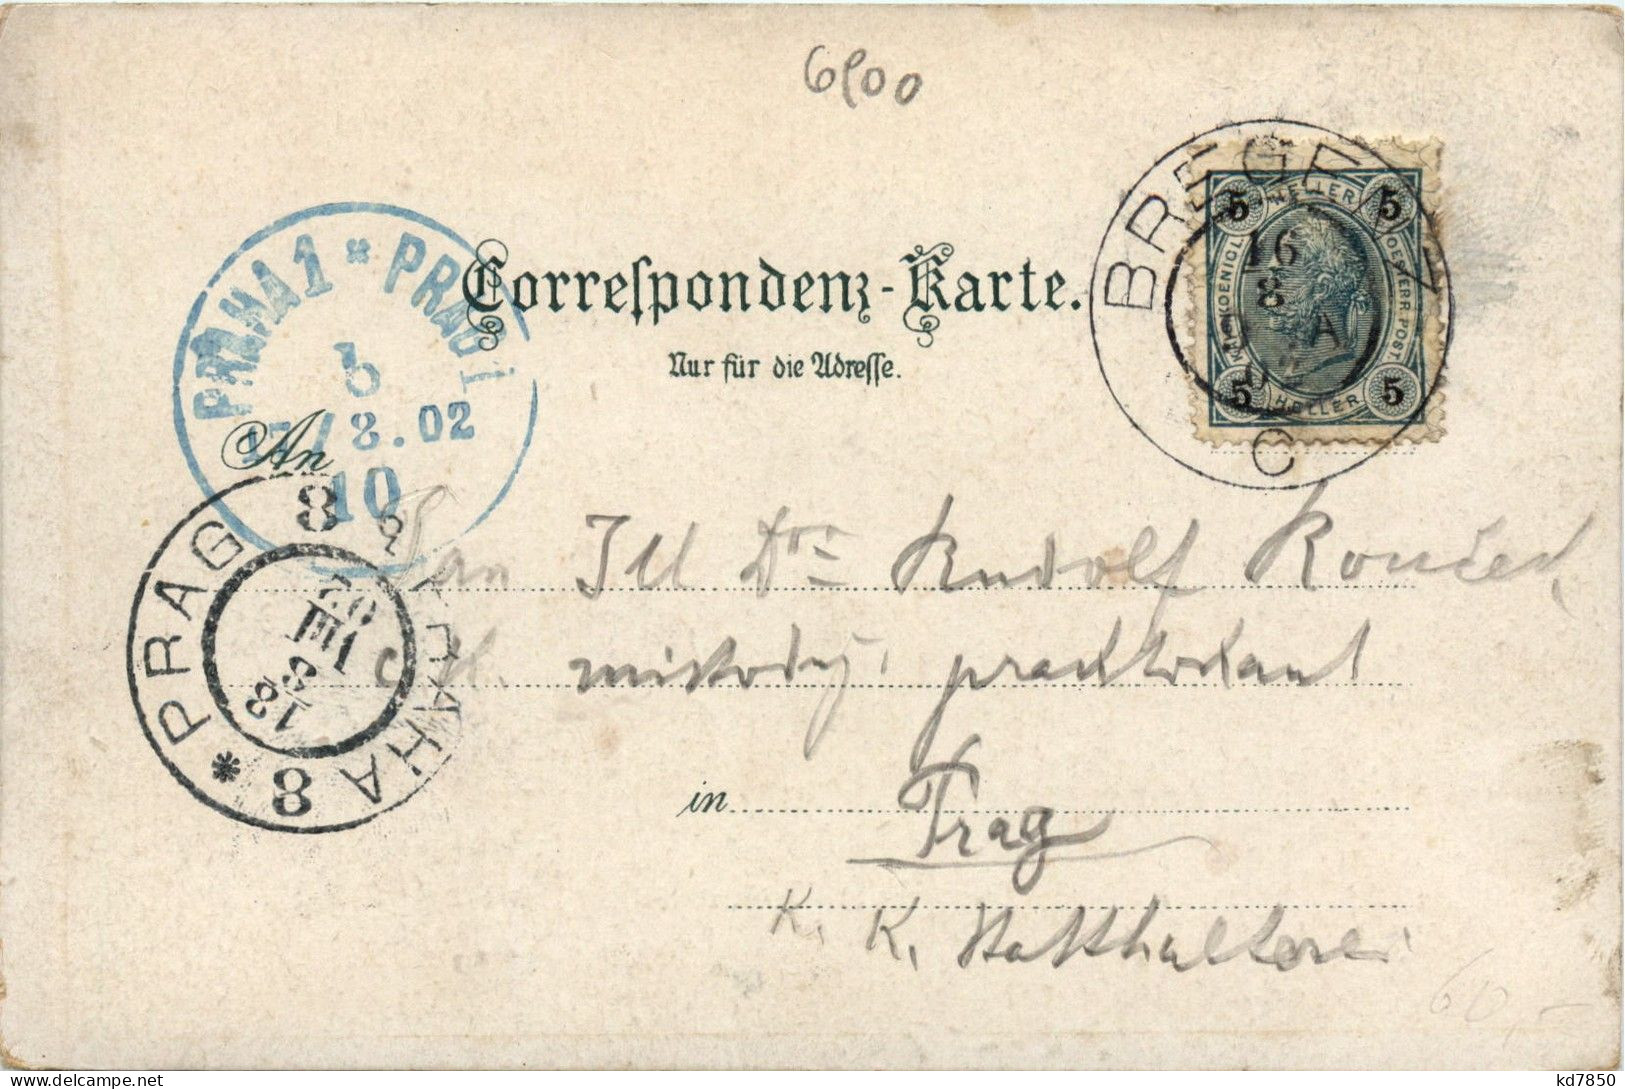 6900
BREGENZ
16
8
A
C
5 HELLER 5
KAIS. KOENIGL. OESTERR. POST
5 HELLER 5
PRAHA 1 * PRAG 1
b
17/8.02
10
Correspondenz-Karte.
Nur für die Adresse.
An
PRAG 8 PRAHA 8 *
18
8
VIII
02
Pan JU Dr. Rudolf
c. k. místodrž. praktikant
in Prag
K. K. Statthalterei
60,-
kd7850